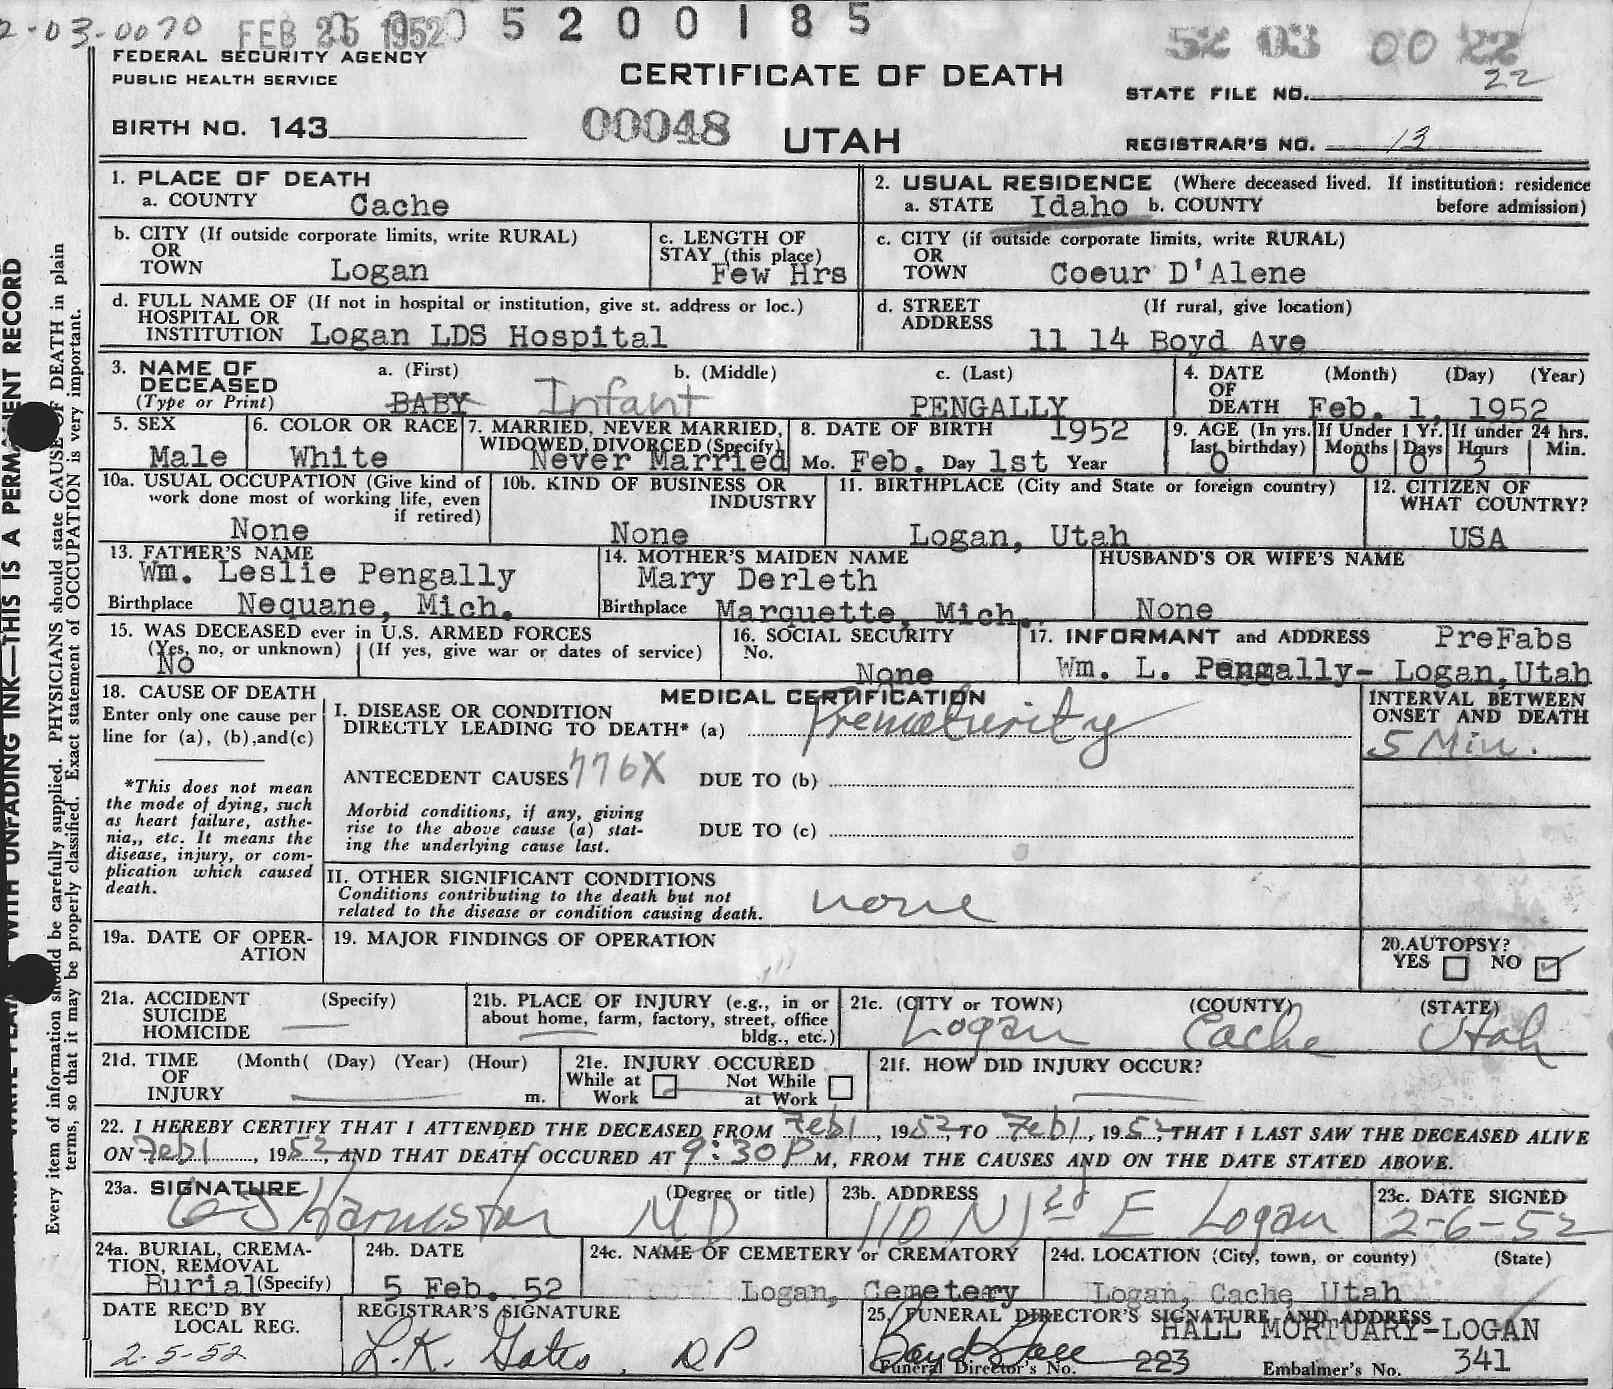 2-03-0070 FEB 25 1952 5200185 52 03 00 22
FEDERAL SECURITY AGENCY
PUBLIC HEALTH SERVICE
CERTIFICATE OF DEATH
STATE FILE NO. 22
BIRTH NO. 143 00048 UTAH REGISTRAR'S NO. 13
1. PLACE OF DEATH
a. COUNTY Cache
2. USUAL RESIDENCE (Where deceased lived. If institution: residence
a. STATE Idaho b. COUNTY before admission)
b. CITY (If outside corporate limits, write RURAL)
OR
TOWN Logan
c. LENGTH OF
STAY (this place)
Few Hrs
c. CITY (if outside corporate limits, write RURAL)
OR
TOWN Coeur D'Alene
d. FULL NAME OF (If not in hospital or institution, give st. address or loc.)
HOSPITAL OR
INSTITUTION Logan LDS Hospital
d. STREET (If rural, give location)
ADDRESS
11 14 Boyd Ave
3. NAME OF
DECEASED
(Type or Print)
a. (First) b. (Middle) c. (Last)
BABY Infant PENGALLY
4. DATE (Month) (Day) (Year)
OF
DEATH Feb. 1, 1952
5. SEX
Male
6. COLOR OR RACE
White
7. MARRIED, NEVER MARRIED,
WIDOWED, DIVORCED (Specify)
Never Married
8. DATE OF BIRTH 1952
Mo. Feb. Day 1st Year
9. AGE (In yrs. If Under 1 Yr. If under 24 hrs.
last birthday) Months Days Hours Min.
0 0 0 3
10a. USUAL OCCUPATION (Give kind of
work done most of working life, even
if retired)
None
10b. KIND OF BUSINESS OR
INDUSTRY
None
11. BIRTHPLACE (City and State or foreign country)
Logan, Utah
12. CITIZEN OF
WHAT COUNTRY?
USA
13. FATHER'S NAME
Wm. Leslie Pengally
Birthplace Nequane, Mich.
14. MOTHER'S MAIDEN NAME
Mary Derleth
Birthplace Marquette, Mich.
HUSBAND'S OR WIFE'S NAME
None
15. WAS DECEASED ever in U.S. ARMED FORCES
(Yes, no, or unknown) (If yes, give war or dates of service)
No
16. SOCIAL SECURITY
No.
None
17. INFORMANT and ADDRESS PreFabs
Wm. L. Pengally- Logan, Utah
18. CAUSE OF DEATH
Enter only one cause per
line for (a), (b), and (c)
*This does not mean
the mode of dying, such
as heart failure, asthe-
nia,, etc. It means the
disease, injury, or com-
plication which caused
death.
MEDICAL CERTIFICATION
I. DISEASE OR CONDITION
DIRECTLY LEADING TO DEATH* (a) Prematurity
ANTECEDENT CAUSES 776X DUE TO (b)
Morbid conditions, if any, giving
rise to the above cause (a) stat-
ing the underlying cause last.
DUE TO (c)
II. OTHER SIGNIFICANT CONDITIONS
Conditions contributing to the death but not
related to the disease or condition causing death.
none
INTERVAL BETWEEN
ONSET AND DEATH
5 Min.
19a. DATE OF OPER-
ATION
19. MAJOR FINDINGS OF OPERATION
20. AUTOPSY?
YES NO
21a. ACCIDENT (Specify)
SUICIDE
HOMICIDE
21b. PLACE OF INJURY (e.g., in or
about home, farm, factory, street, office
bldg., etc.)
21c. (CITY or TOWN) (COUNTY) (STATE)
Logan Cache Utah
21d. TIME (Month( (Day) (Year) (Hour)
OF
INJURY m.
21e. INJURY OCCURED
While at Not While
Work at Work
21f. HOW DID INJURY OCCUR?
22. I HEREBY CERTIFY THAT I ATTENDED THE DECEASED FROM Feb 1, 1952, TO Feb 1, 1952, THAT I LAST SAW THE DECEASED ALIVE
ON Feb 1, 1952, AND THAT DEATH OCCURED AT 9:30 P M, FROM THE CAUSES AND ON THE DATE STATED ABOVE.
23a. SIGNATURE (Degree or title)
Harmston MD
23b. ADDRESS
110 N 1st E Logan
23c. DATE SIGNED
2-6-52
24a. BURIAL, CREMA-
TION, REMOVAL
Burial (Specify)
24b. DATE
5 Feb. 52
24c. NAME OF CEMETERY or CREMATORY
Logan, Cemetery
24d. LOCATION (City, town, or county) (State)
Logan, Cache, Utah
DATE REC'D BY
LOCAL REG.
2-5-52
REGISTRAR'S SIGNATURE
L.K. Gates, RP
25. FUNERAL DIRECTOR'S SIGNATURE AND ADDRESS
HALL MORTUARY-LOGAN
Boyd Hall
Funeral Director's No. 223 Embalmer's No. 341
THIS IS A PERMANENT RECORD
WITH UNFADING INK
Every item of information should be carefully supplied. PHYSICIANS should state CAUSE OF DEATH in plain
terms, so that it may be properly classified. Exact statement of OCCUPATION is very important.